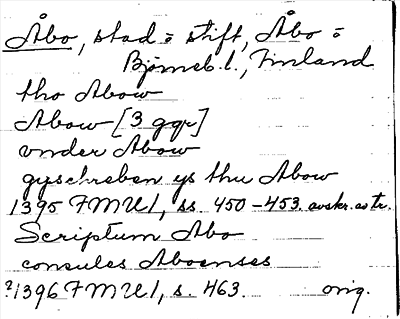 Åbo, stad o stift, Åbo o
Björneb. l., Finland
tho Abow
Abow [3 ggr]
vnder Abow
gyschreben ys thu Abow
1395 FMU 1, ss. 450-453. avskr. av tr.
Scriptum Abo
consules Aboenses
?1396 FMU 1, s. 463. orig.